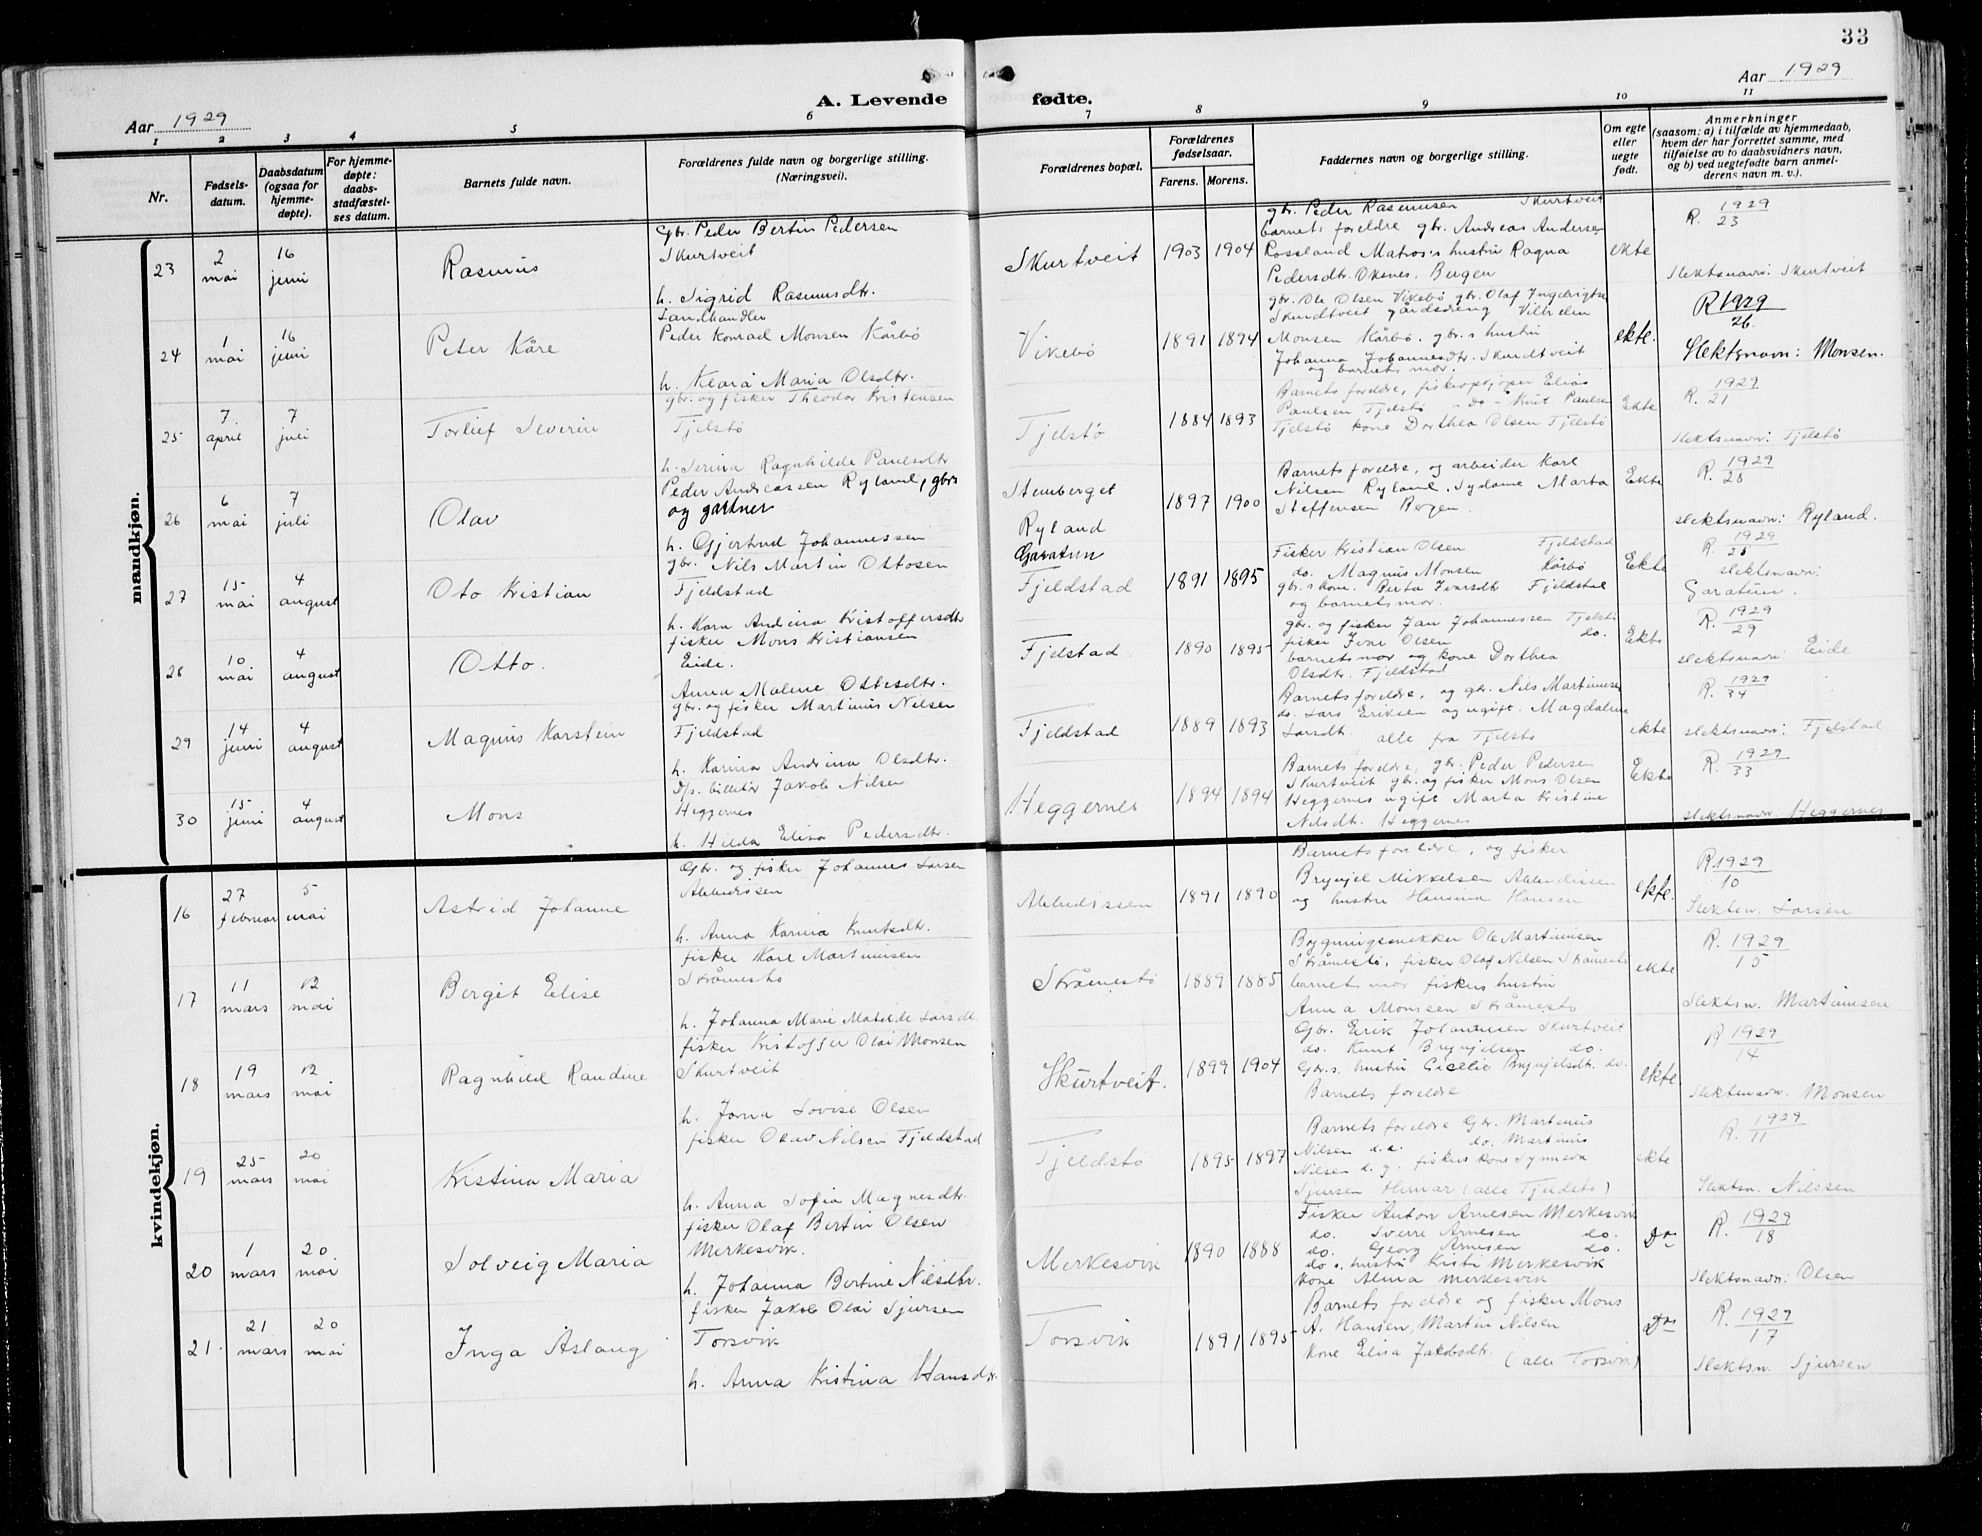 33
Aar 1929
A. Levende fødte.
Aar 1929
1 2 3 4 5 6 7 8 9 10 11
Nr.
Fødsels-
datum.
Daabsdatum
(ogsaa for
hjemme-
døpte).
For hjemme-
døpte:
daabs-
stadfæstel-
ses datum.
Barnets fulde navn.
Forældrenes fulde navn og borgerlige stilling.
(Næringsvei).
Forældrenes bopæl.
Forældrenes
fødselsaar.
Farens. Morens.
Faddernes navn og borgerlige stilling.
Om egte
eller
uegte
født.
Anmerkninger
(saasom: a) i tilfælde av hjemmedaab,
hvem der har forrettet samme, med
tilføielse av to daabsvidners navn,
og b) ved uegtefødte barn anmel-
derens navn m. v.).
mandkjøn.
23
2
mai
16
juni
Rasmus
Gbr. Peder Bertin Pedersen
Skurtveit
h. Sigrid Rasmusdtr.
Skurtveit
1903 1904
gbr. Peder Rasmusen Skurtveit
barnets foreldre gbr. Andreas Andersen
Rossland Matros's hustru Ragna
Pedersdtr. Oksnes, Bergen
ekte
R. 1929
23
Slektsnavn: Skurtveit
24
1
mai
16
juni
Peter Kåre
Landhandler
Peder Konrad Monsen Kårbø
h. Klara Maria Olsdtr.
Vikebø
1891 1894
gbr. Ole Olsen Vikebø gbr. Olaf Ingebrigtsen
Skurdtveit gårdsdreng Vilhelm
Monsen Kårbø. gbr.s hustru
Johanna Johannesdtr. Skurdtveit
og barnets mor.
ekte.
R 1929
26
Slektsnavn: Monsen.
25
7
april
7
juli
Torleif Severin
gbr. og fisker Theodor Kristensen
Tjelstø
h. Serina Ragnhilde Paulsdtr
Tjelstø
1884 1893
Barnets foreldre, fiskeopkjøper Elias
Paulsen Tjelstø - do - Knut Paulsen
Tjelstø kone Dorthea Olsen Tjelstø
Ekte
R. 1929
21
Slektsnavn: Tjelstø
26
6
mai
7
juli
Olav
Peder Andreassen Ryland, gbr
og gartner
h. Gjertrud Johannessen
Stemberget
Ryland
1897 1900
Barnets foreldre, og arbeider Karl
Nilsen Ryland. Sydame Marta
Steffensen Bergen.
Ekte
R. 1929
28
slektsnavn: Ryland.
27
15
mai
4
august
Oto Kristian
gbr. Nils Martin Ottosen
Fjeldstad
h. Karn Andrina Kristoffersdtr
Garatun
Fjeldstad
1891 1895
Fisker Kristian Olsen Fjeldstad
do. Magnus Monsen Kårbø
gbr.s kone. Berta Ivarsdt Fjeldstad
og barnets mor.
Ekte
R. 1929
25
slektsnavn:
Garatun.
28
10
mai
4
august
Otto.
fisker Mons Kristiansen
Eide.
Anna Malene Ottesdtr.
Fjelstad
1890 1895
gbr. og fisker Jan Johannessen Tjelstø
fisker Ivar Olsen do.
barnets mor og kone Dorthea
Olsdtr. Fjeldstad
Ekte
R. 1929
29
slektsnavn: Eide
29
14
juni
4
august
Magnus Karstein
gbr. og fisker Martinus Nilsen
Fjeldstad
h. Karina Andrina Olsdtr.
Fjeldstad
1889 1893
Barnets foreldre, og gbr. Nils Martinusen
do. Lars Eriksen og ugift. Magdalene
Larsdt. alle fra Tjelstø
ekte
R. 1929
34
slektsnavn: Fjelstad
30
15
juni
4
august
Mons
D/s. billetør Jakob Nilsen
Heggernes
h. Hilda Elisa Pedersdtr.
Heggernes
1894 1894
Barnets foreldre, gbr. Peder Pedersen
Skurtveit gbr. og fisker Mons Olsen
Heggernes ugift Marta Kristine
Nilsdt. Heggernes
Ekte
R. 1929
33
slektsnavn: Heggernes
kvindekjøn.
16
27
februar
5
mai
Astrid Johanne
Gbr. og fisker Johannes Larsen
h. Anna Karina Knutsdtr.
1891 1890
Barnets foreldre, og fisker
Brynjel Mikkelsen
og hustru Hansina Hansen
ekte.
R. 1929
10
Slektsn. Larsen
17
11
mars
12
mai
Berget Elise
fisker Karl Martinusen
Skråmestø
h. Johanna Marie Matilde Larsdt.
Skråmestø
1889 1885
Bygningssnekker Ole Martinusen
Skråmestø, fisker Olaf Nilsen Skråmestø
barnets mor fiskers hustru
Anna Monsen Skråmestø
ekte
R. 1929
15
Slektsn. Martinusen
18
19
mars
12
mai
Ragnhild Randine
fisker Kristoffer Olai Monsen
Skurtveit
h. Jorna Lovise Olsen
Skurtveit.
1899 1904
Gbr. Erik Johannesen Skurtveit
do. Knut Brynjelsen do.
Gbr.s. hustru Cicelie Brynjelsdt. do.
Barnets foreldre.
ekte
R 1929
14
Slektsnavn. Monsen
19
25
mars
20
mai
Kristina Maria
fisker Olav Nilsen Fjeldstad
h. Anna Sofia Magnesdtr.
Tjeldstø
1895 1897
Barnets foreldre Gbr. Martinus
Nilsen d.e. do. Martinus
Nilsen d.y. fiskers kone Synneva
Sjursen Hemar (alle Tjeldstø)
ekte
R. 1929
11
Slektsn. Nilssen
20
1
mars
20
mai
Solveig Maria
fisker Olaf Bertin Olsen
Merkesvik.
h. Johanna Bertine Nilsdtr.
Merkesvik
1890 1888
Fisker Anton Arnesen Merkesvik
do. Sverre Arnesen do.
do. Georg Arnesen do.
do.s. hustru Kristi Merkesvik
kone Alma Merkesvik
Do
R. 1929
18
Slektsnavn: Olsen
21.
21
mars
20
mai
Inga Åslaug
fisker Jakob Olai Sjursen
Torsvik
h. Anna Kristina Hansdtr.
Torsvik
1891 1895
Barnets foreldre og fisker Mons
A. Hansen, Martin Nilsen
kone Elisa Jakobsdtr.
(alle Torsvik)
Do
R. 1929
17
Slektsn. Sjursen